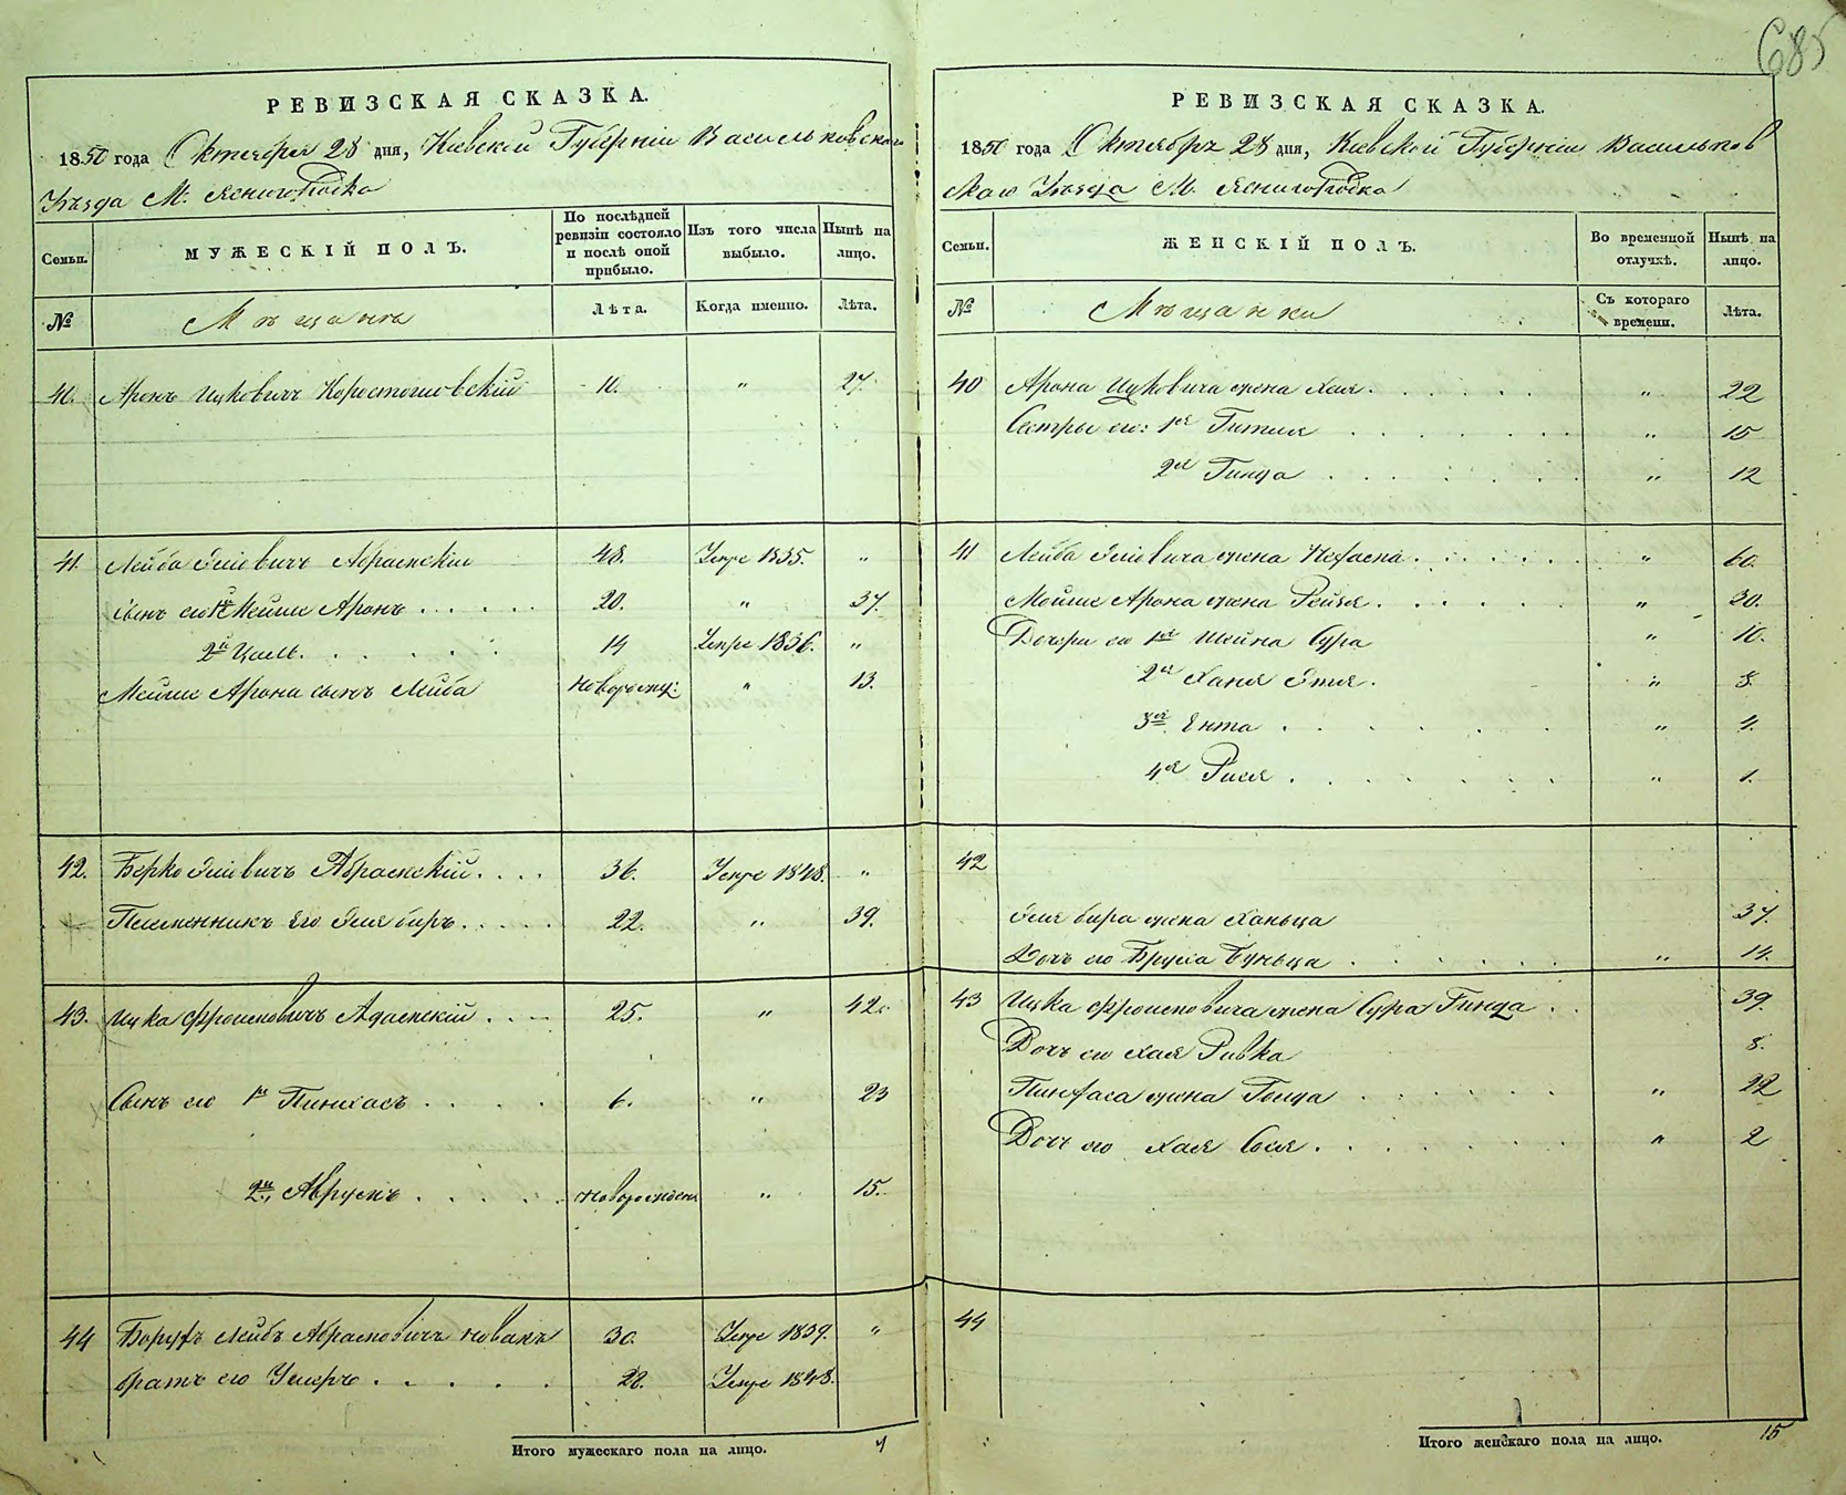 685
РЕВИЗСКАЯ СКАЗКА.
1850 года Октября 28 дня, Киевской Губерніи Васильковскаго
Уѣзда М. Ясногородка
Семьи.
МУЖЕСКІЙ ПОЛЪ.
По послѣдней ревизіи состояло и послѣ оной прибыло.
Изъ того числа выбыло.
Нынѣ на лицо.
№
Мѣщане
Лѣта.
Когда именно.
Лѣта.
40. Аронъ Ицковичъ Коростошовскій 10. " 27.
41. Лейба Эліовичъ Абрамскій 48. Умре 1835. "
сынъ его 1й Мойше Аронъ . . . . . 20. " 37.
2й Цаль. . . . . . 14 Умре 1836. "
Мойше Арона сынъ Лейба новорожд: " 13.
42. Берко Эліовичъ Абрамскій. . . . 36. Умре 1848. "
Племенникъ его Эля беръ. . . . . 22. " 39.
43. Ицка Фроимовичъ Адамскій . . . 25. " 42.
Сынъ его 1й Пинхасъ . . . . 6. " 23
2й Аврумъ . . . . . новорожден " 15.
44 Борухъ Лейбъ Абрамовичъ Новакъ 30. Умре 1839. "
братъ его Ушеръ . . . . . 22. Умре 1848.
Итого мужескаго пола на лицо. 7
РЕВИЗСКАЯ СКАЗКА.
1850 года Октября 28 дня, Киевской Губерніи Васильков
скаго Уѣзда М. Ясногородка
Семьи.
ЖЕНСКІЙ ПОЛЪ.
Во временной отлучкѣ.
Нынѣ на лицо.
№
Мѣщанки
Съ котораго времени.
Лѣта.
40 Арона Ицковича жена Хая . . . . . . " 22
Сестры его: 1я Гитля . . . . . . " 15
2я Гинда . . . . . . " 12
41 Лейба Эліовича жена Нехама . . . . . . " 60.
Мойше Арона жена Рейзя . . . . . . " 30.
Дочери его 1я Шейна Сура " 10.
2я Ханя Этля. " 8.
3я Ента . . . . . . " 4.
4я Рися . . . . . . " 1.
42
Эля бера жена Ханьца 37.
Дочь его Бруха Буньца . . . . . . " 14.
43 Ицка Фроимовича жена Сура Гинда . . 39.
Дочь его Хая Ривка 8.
Пинхаса жена Голда . . . . . . " 22
Дочь его Хая Сося . . . . . . " 2
44
Итого женскаго пола на лицо. 15